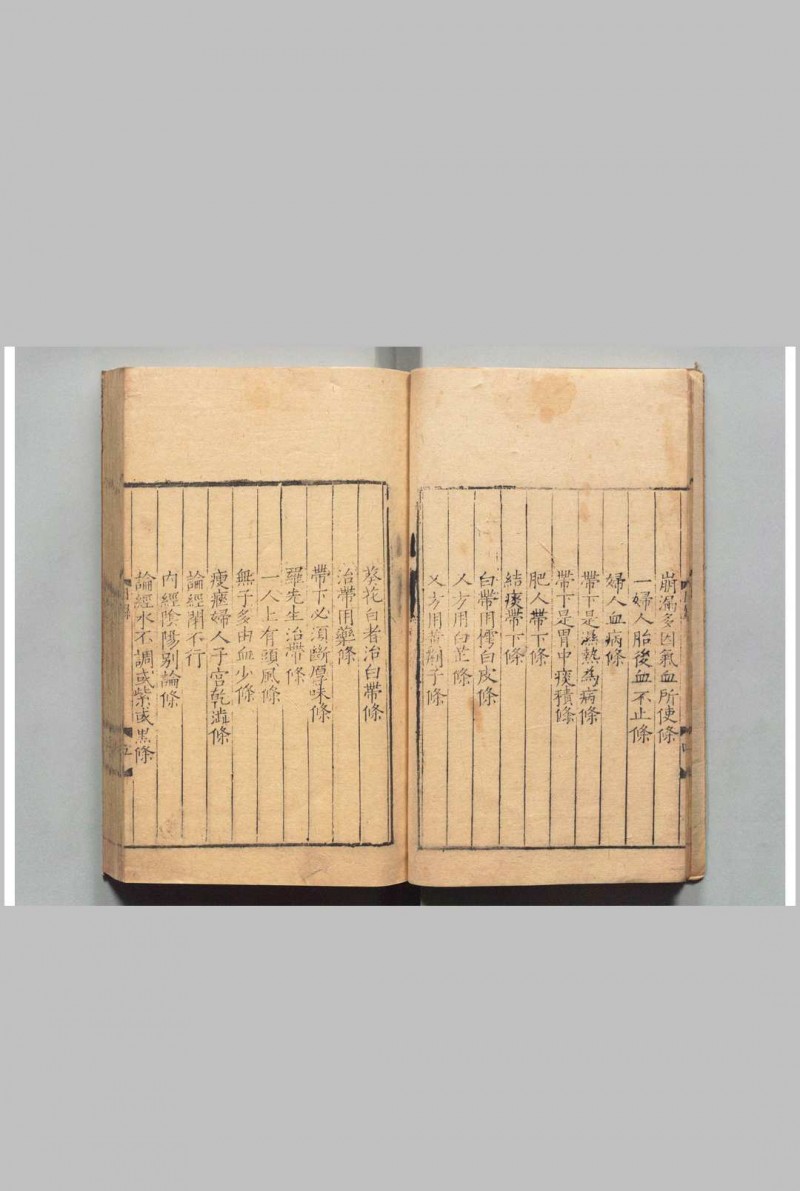 崩漏多因氣血所使條
一婦人胎後血不止條
婦人血病條
帶下是濕熱為病條
帶下是胃中痰積條
肥人帶下條
結痰帶下條
白帶用樗白皮條
人方用白芷條
又方用黃荊子條
葵花白者治白帶條
治帶用藥條
帶下必須斷厚味條
羅先生治帶條
一人上有頭風條
無子多由血少條
瘦瘁婦人子宮乾澁條
論經閉不行
內經陰陽別論條
論經水不調或紫或黑條